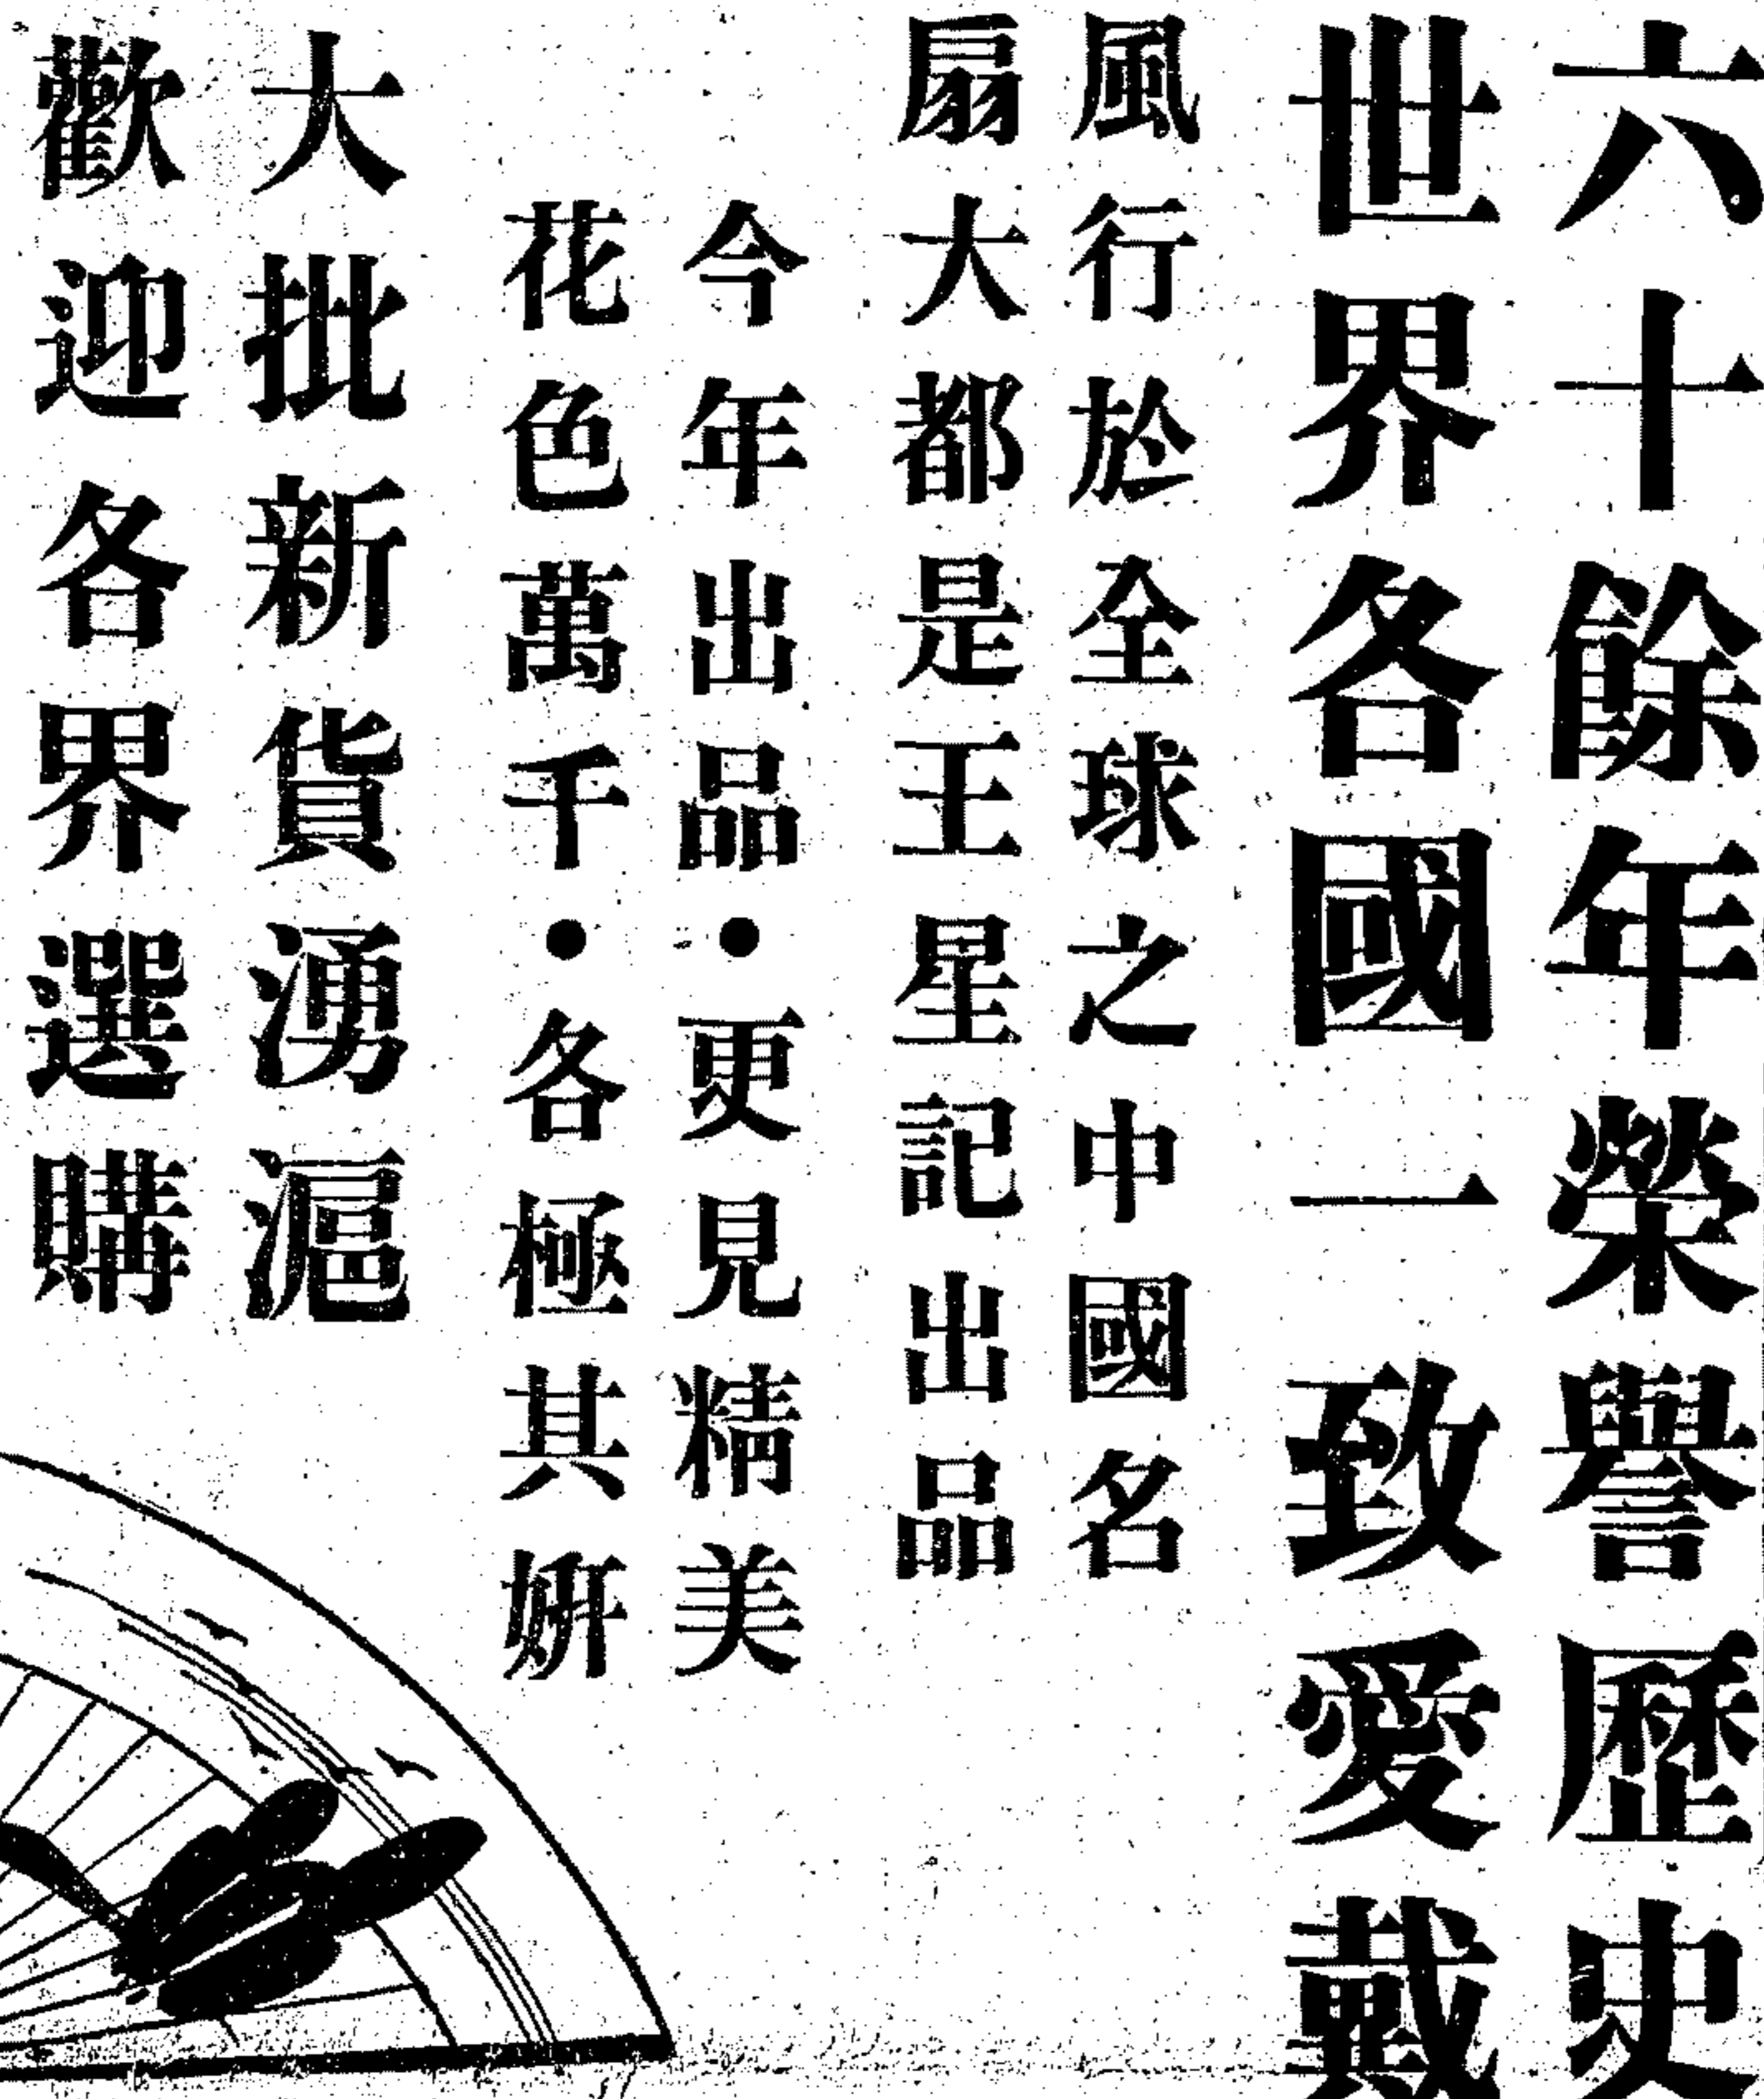 六十餘年榮譽歷史
世界各國一致愛戴
風行於全球之中國名
扇大都是王星記出品
今年出品•更見精美
花色萬千•各極其姸
大批新貨湧滬
歡迎各界選購